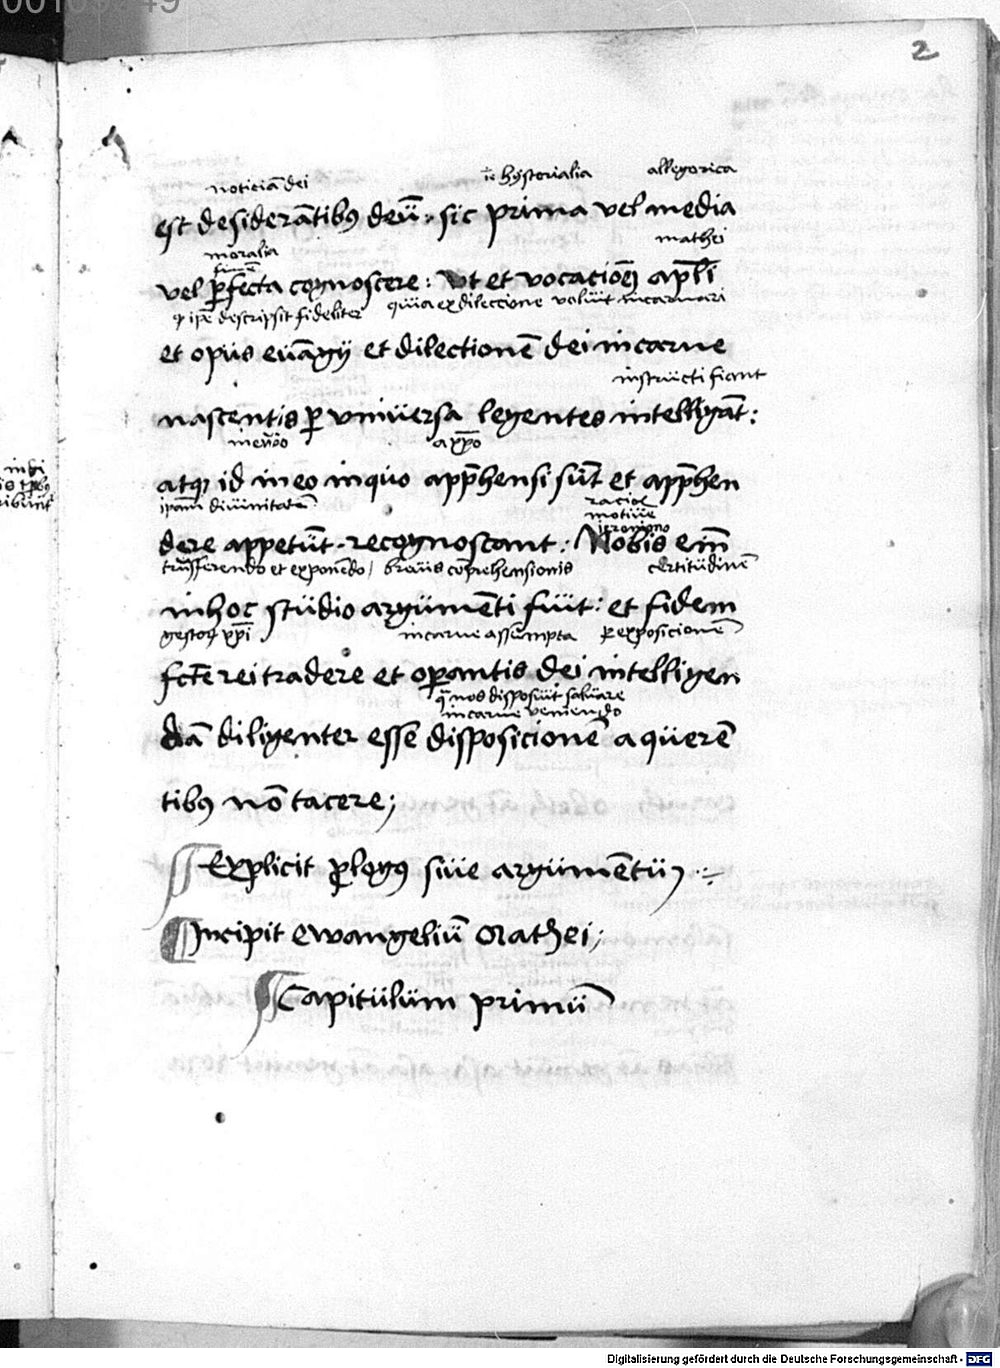 2
noticiā dei īe hystorialia allegorica
est desiderātibꝰ deū· sic prima vel media
moralia mathei
vel ꝑfecta cognoscere: Vt et vocacionē apl̄i
ꝙ ipē descripsit fideliter quia ex dileccione volūit incarnari
et opus eūāgij et dilectionē dei in carne
instructi fiant
nascentis ꝑ vniūersa legentes intelligāt:
atqꝫ id in eo in quo app̄hensi sūt et app̄hen
ipam diuinitatē
motiūe
dere appetūt· recognoscant: Nobis em̄
trāsferendo et exponēdo / breūis cōprehensionis certitūdinē
in hoc stūdio argūmēti fūit: et fidem
gestoꝝ xp̄i in carne assūmpta ꝑ exposicionē
fctē rei tradere et oꝑantis dei intelligen
q̄ nos disposūit salūare
in carne veniendo
dā diligenter esse disposicionē a qūerē
tibꝰ nō tacere;
Explicit ꝓlogꝰ siūe argūmētū
Incipit ewangeliū Mathei;
Capitūlūm primū
Digitalisierung gefördert durch die Deutsche Forschungsgemeinschaft - DFG